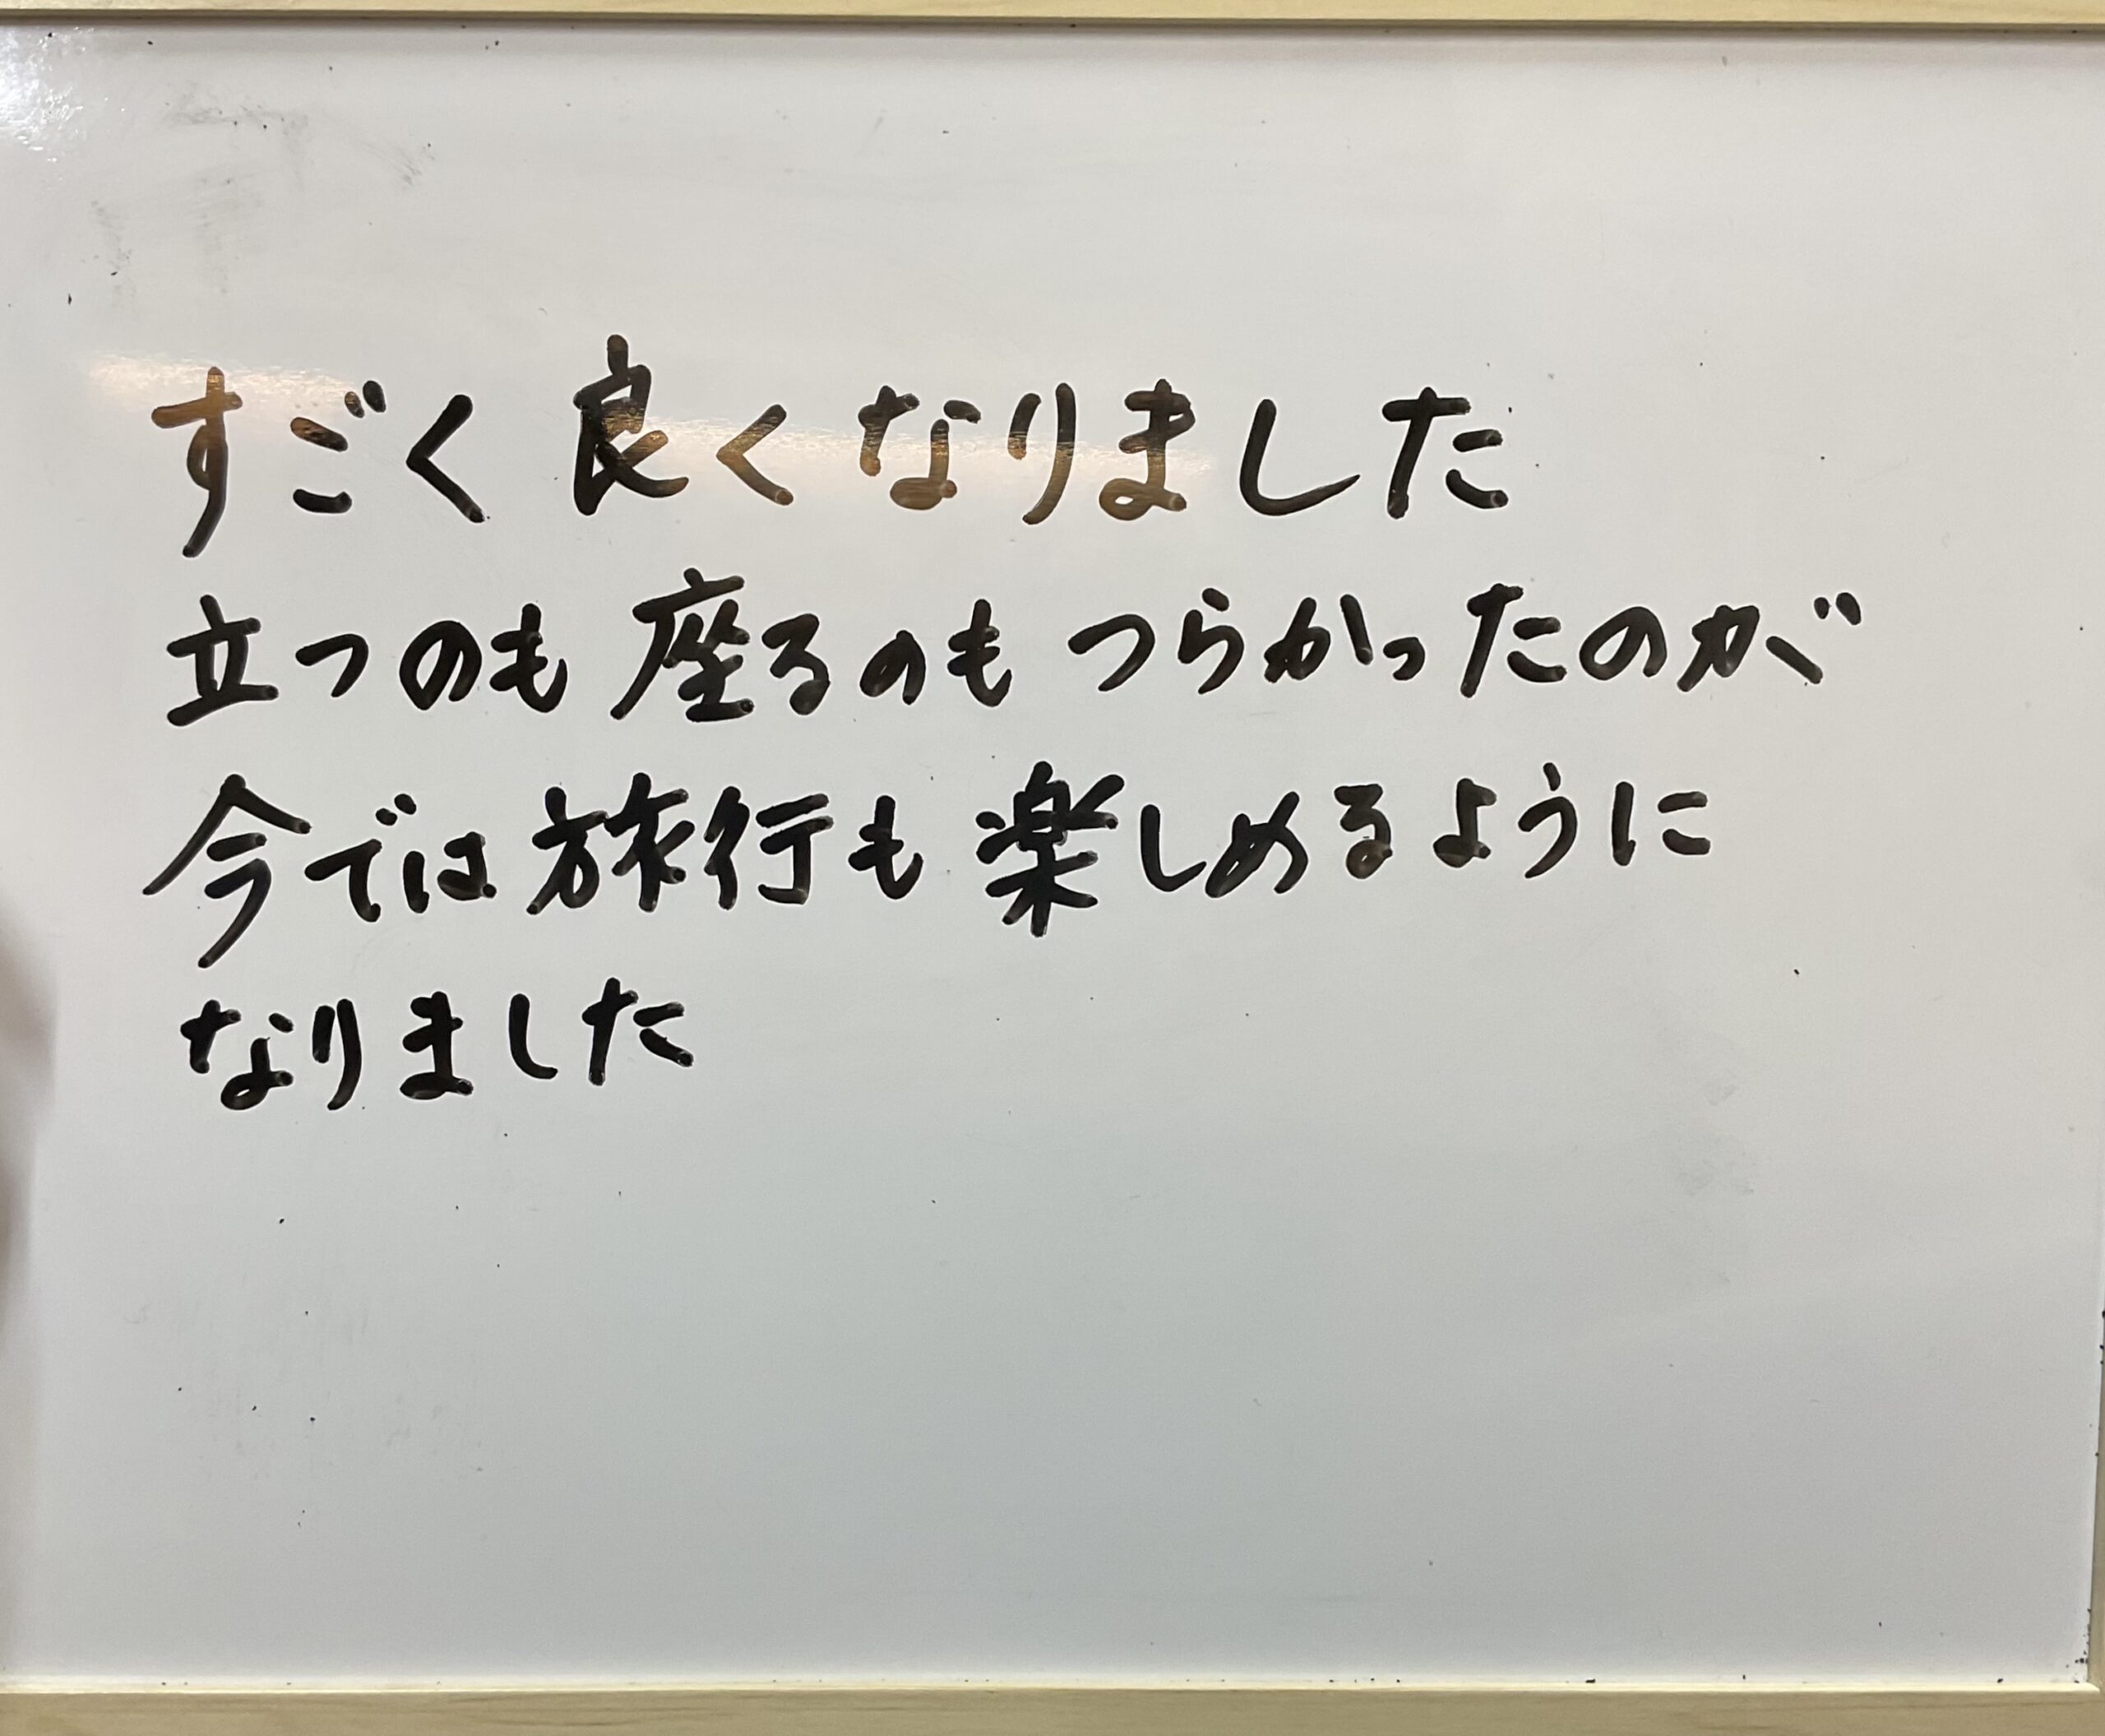 すごく良くなりました
立つのも座るのもつらかったのが
今では旅行も楽しめるように
なりました